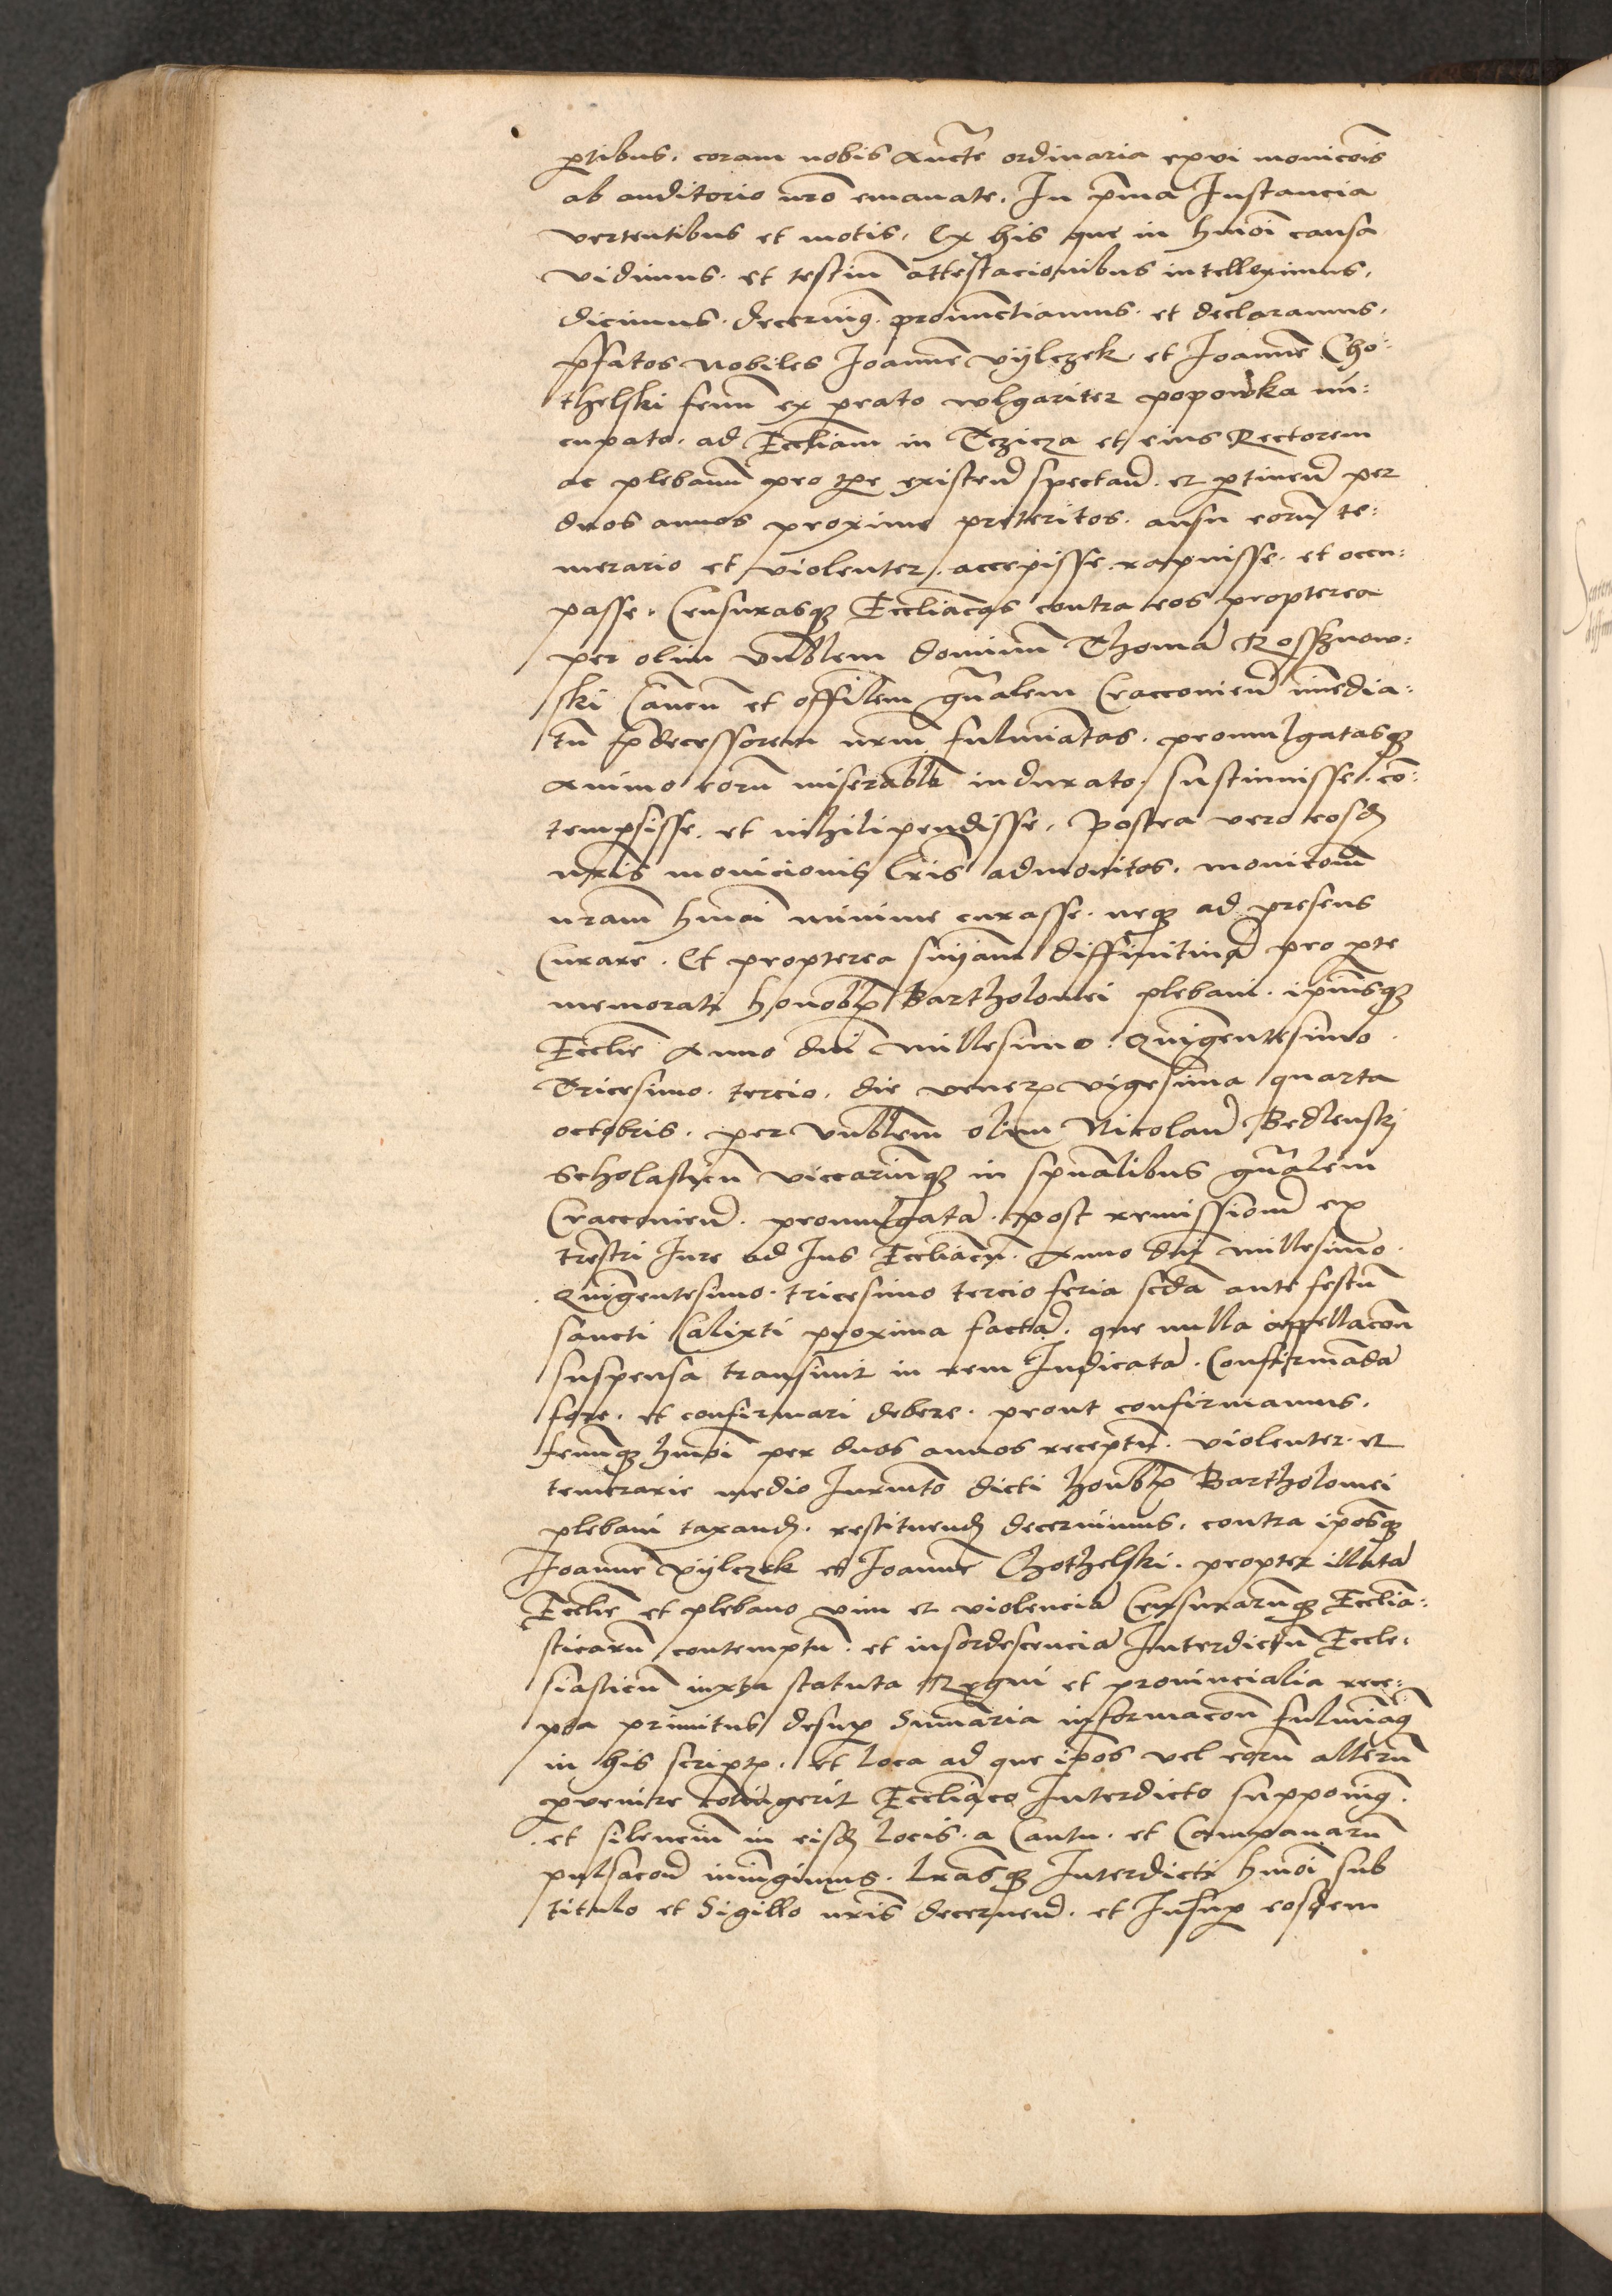 ptibus. coram nobis Aucte ordinaria ex vi moniconis
ab auditorio nro emanate. In pma Instancia
vertentibus et motis. Ex his que in hmoi causa
vidimus. et testiu attestacionibus intelleximus.
dicimus. decernimq. pronunctiamus. et declaramus.
pfatos Nobiles Joanne vÿlczek et Joanne Cho:
thelski fenu ex prato wlgariter popowka nu:
cupato. ad Eccliam in Czicza et eius Rectorem
ac plebanu pro tpe existen spectan. et ptinen per
duos annos proxime preteritos. ausu eoru te:
merario et violenter. accepisse. rapuisse. et occu:
passe. Censurasq Eccliacas contra eos propterea
per olim vnblem dominu Thoma Rossznow:
ski Canicu et offilem gnalem Cracovien imedia:
tu pdecessorem nrm fulmiatas. promulgatasq
animo eoru miserablr indurato. sustinuisse. co:
tempsisse. et nihilipendisse. Postea vero eosd
nris monicionis lris admonitos. moniconem
nram hmoi minime curasse. neq ad presens
Curare. Et propterea snÿam diffinitiua pro pte
memorati honobl Bartholomei plebani. ipiusq
Ecclie Anno dni Millesimo. Quigentesimo
Tricesimo. tercio. die veneris vigesima quarta
octobris. per vnblem olim Nicolau Bedlenskj
Scholasticu viccariuq in spualibus gnalem
Cracovien. promulgata. post remissione ex
trestri Iure ad Ius Eccliacu. Anno dni millesimo.
Quigentesimo. tricesimo tercio feria scda ante festu
sancti Calixti proxima facta. que nulla appellacone
suspensa transiuit in rem Iudicata. Confirmada
fore. et confirmari debere. prout confirmamus.
fenuq hmoi per duos annos receptu. violenter et
temerarie medio Iurmto dicti honobl Bartholomei
plebani taxand. restituend decernimus. contra iposq
Joanne vÿlczek et Joanne Chothelski. propter illata
Ecclie et plebano vim et violencia Censuraruq Ecclia:
sticaru contemptu. et insordescencia Interdictu Eccle:
siasticu iuxta statuta Regni et prouincialia rece:
pta primitus desup Sumaria informacone fulmiaq
in his scriptis. et loca ad que ipos vel eoru alteru
pvenire cotigerit Eccliaco Interdicto supponimq.
et silenciu in eisd locis. a Cantu. et Campanaru
pulsacone iniugimus. Lrasq Interdicti hmoi sub
titulo et Sigillo nris decernen. et Insup eosdem